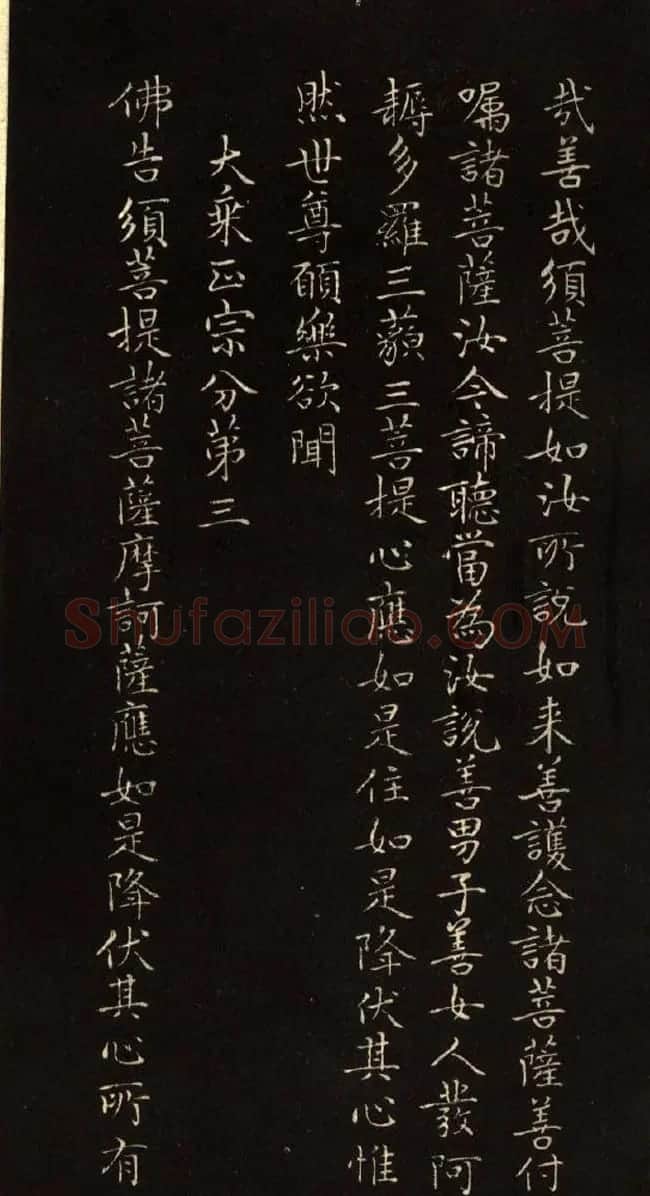 哉善哉須菩提如汝所說如来善護念諸菩薩善付
囑諸菩薩汝今諦聽當為汝說善男子善女人發阿
耨多羅三藐三菩提心應如是住如是降伏其心惟
然世尊願樂欲聞
大乘正宗分第三
佛告須菩提諸菩薩摩訶薩應如是降伏其心所有
Shufaziliao.COM